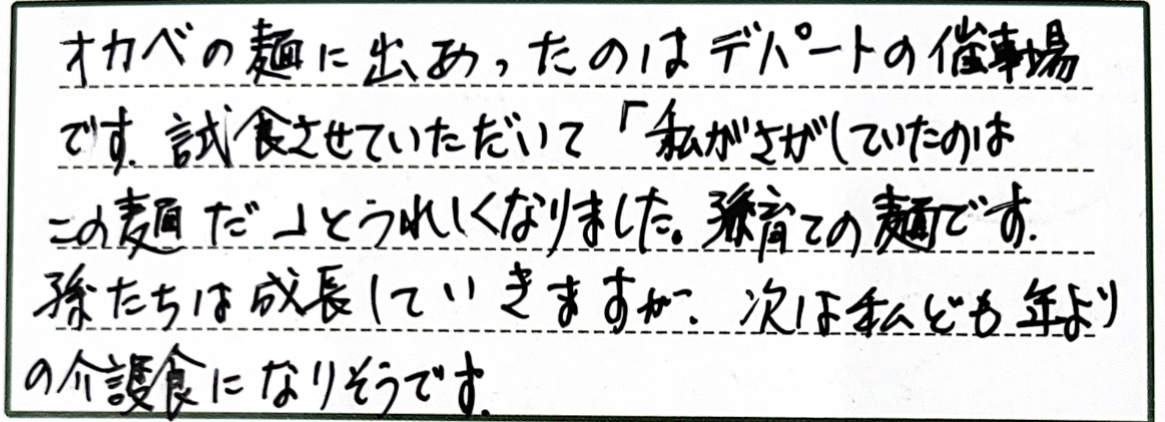 オカベの麺に出あったのはデパートの催事場
です.試食させていただいて「私がさがしていたのは
この麺だ」とうれしくなりました。孫育ての麺です.
孫たちは成長していきますが、次は私ども年より
の介護食になりそうです.